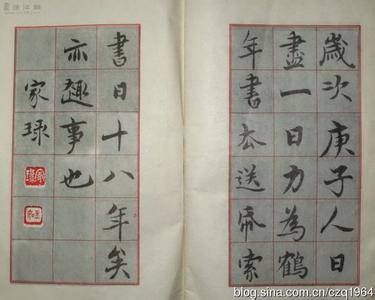 歲次庚子人日
盡一日力為鶴
年書厺送帋索
書日十八年矣
亦趣事也
家琭
blog.sina.com.cn/czq1964